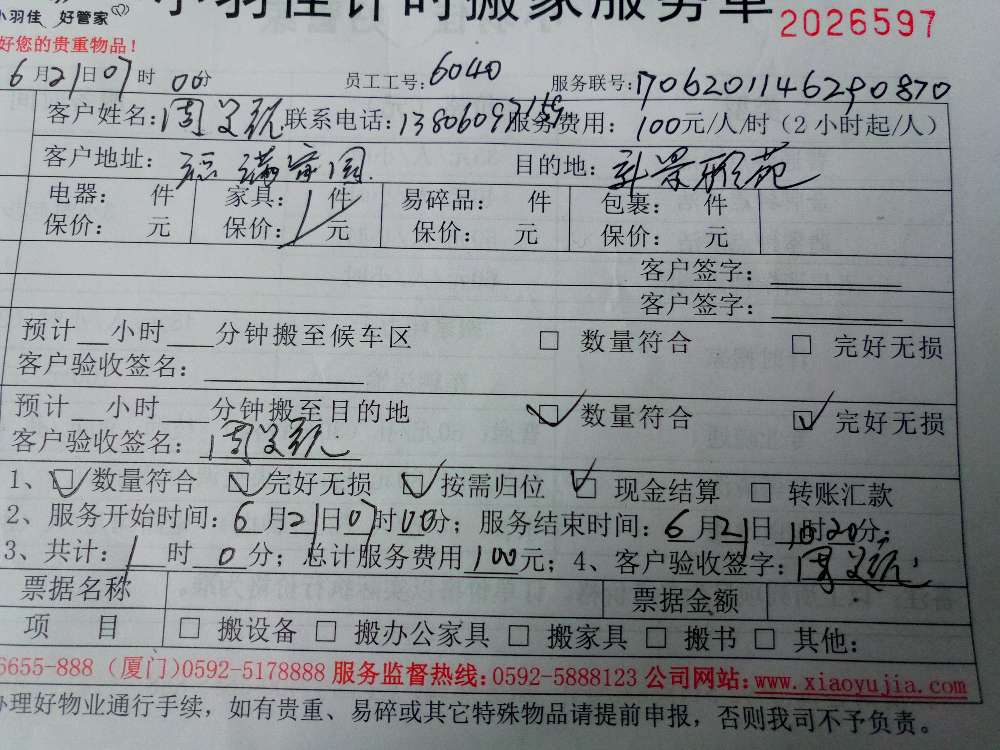 小羽佳 好管家 小羽佳计时搬家服务单 2026597
好您的贵重物品！
6月21日07时00分 员工工号：6040 服务联号：1706201146290870
客户姓名：周 联系电话： 服务费用：100元/人/时（2小时起/人）
客户地址：福满家园 目的地：雅苑
电器： 件 家具： 件 易碎品： 件 包裹： 件
保价： 元 保价： 元 保价： 元 保价： 元
客户签字：
客户签字：
预计__小时___分钟搬至候车区 □ 数量符合 □ 完好无损
客户验收签名：
预计__小时___分钟搬至目的地 ☑ 数量符合 ☑ 完好无损
客户验收签名：周
1、☑数量符合 ☑完好无损 ☑按需归位 ☑ 现金结算 □ 转账汇款
2、服务开始时间：6月21日07时00分；服务结束时间：6月21日 时20分；
3、共计：1时 0分；总计服务费用100元；4、客户验收签字：周
票据名称 票据金额
项 目 □ 搬设备 □ 搬办公家具 □ 搬家具 □ 搬书 □ 其他：
6655-888（厦门)0592-5178888 服务监督热线:0592-5888123 公司网站:www.xiaoyujia.com
办理好物业通行手续，如有贵重、易碎或其它特殊物品请提前申报，否则我司不予负责。